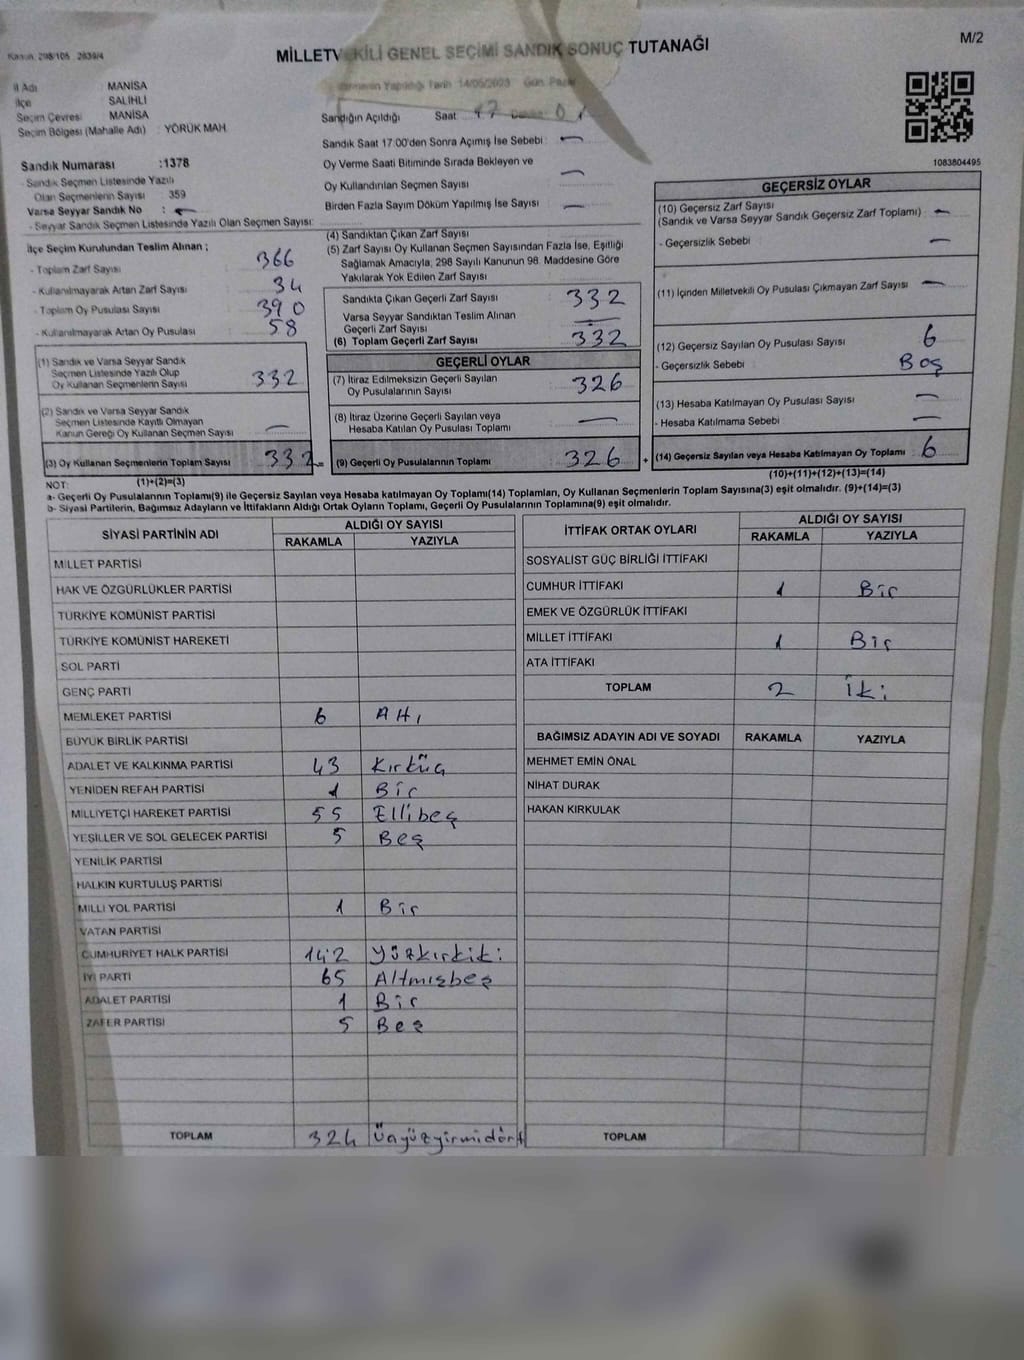 Kanun. 298/105 2839/4
MİLLETVEKİLİ GENEL SEÇİMİ SANDIK SONUÇ TUTANAĞI
M/2
İl Adı : MANİSA
İlçe : SALİHLİ
Seçim Çevresi : MANİSA
Seçim Bölgesi (Mahalle Adı) : YÖRÜK MAH.
Sandık Numarası : 1378
- Sandık Seçmen Listesinde Yazılı
Olan Seçmenlerin Sayısı 359
Varsa Seyyar Sandık No : -
- Seyyar Sandık Seçmen Listesinde Yazılı Olan Seçmen Sayısı:
İlçe Seçim Kurulundan Teslim Alınan ;
- Toplam Zarf Sayısı : 366
- Kullanılmayarak Artan Zarf Sayısı : 34
- Toplam Oy Pusulası Sayısı : 390
- Kullanılmayarak Artan Oy Pusulası : 58
(1) Sandık ve Varsa Seyyar Sandık
Seçmen Listesinde Yazılı Olup
Oy Kullanan Seçmenlerin Sayısı 332
(2) Sandık ve Varsa Seyyar Sandık
Seçmen Listesinde Kayıtlı Olmayan
Kanun Gereği Oy Kullanan Seçmen Sayısı -
(3) Oy Kullanan Seçmenlerin Toplam Sayısı 332
(1)+(2)=(3)
Seçimin Yapıldığı Tarih 14/05/2023 Gün Pazar
Sandığın Açıldığı Saat 17 Dakika 01
Sandık Saat 17:00'den Sonra Açımış İse Sebebi : -
Oy Verme Saati Bitiminde Sırada Bekleyen ve
Oy Kullandırılan Seçmen Sayısı : -
Birden Fazla Sayım Döküm Yapılmış İse Sayısı : -
(4) Sandıktan Çıkan Zarf Sayısı
(5) Zarf Sayısı Oy Kullanan Seçmen Sayısından Fazla İse, Eşitliği
Sağlamak Amacıyla, 298 Sayılı Kanunun 98. Maddesine Göre
Yakılarak Yok Edilen Zarf Sayısı :
Sandıkta Çıkan Geçerli Zarf Sayısı : 332
Varsa Seyyar Sandıktan Teslim Alınan
Geçerli Zarf Sayısı : -
(6) Toplam Geçerli Zarf Sayısı : 332
GEÇERLİ OYLAR
(7) İtiraz Edilmeksizin Geçerli Sayılan
Oy Pusulalarının Sayısı : 326
(8) İtiraz Üzerine Geçerli Sayılan veya
Hesaba Katılan Oy Pusulası Toplamı : -
= (9) Geçerli Oy Pusulalarının Toplamı 326
1083804495
GEÇERSİZ OYLAR
(10) Geçersiz Zarf Sayısı
(Sandık ve Varsa Seyyar Sandık Geçersiz Zarf Toplamı) : -
- Geçersizlik Sebebi : -
(11) İçinden Milletvekili Oy Pusulası Çıkmayan Zarf Sayısı : -
(12) Geçersiz Sayılan Oy Pusulası Sayısı : 6
- Geçersizlik Sebebi : Boş
(13) Hesaba Katılmayan Oy Pusulası Sayısı : -
- Hesaba Katılmama Sebebi : -
+ (14) Geçersiz Sayılan veya Hesaba Katılmayan Oy Toplamı : 6
(10)+(11)+(12)+(13)=(14)
NOT:
a- Geçerli Oy Pusulalarının Toplamı(9) ile Geçersiz Sayılan veya Hesaba katılmayan Oy Toplamı(14) Toplamları, Oy Kullanan Seçmenlerin Toplam Sayısına(3) eşit olmalıdır. (9)+(14)=(3)
b- Siyasi Partilerin, Bağımsız Adayların ve İttifakların Aldığı Ortak Oyların Toplamı, Geçerli Oy Pusulalarının Toplamına(9) eşit olmalıdır.
SİYASİ PARTİNİN ADI ALDIĞI OY SAYISI
RAKAMLA YAZIYLA
MİLLET PARTİSİ
HAK VE ÖZGÜRLÜKLER PARTİSİ
TÜRKİYE KOMÜNİST PARTİSİ
TÜRKİYE KOMÜNİST HAREKETİ
SOL PARTİ
GENÇ PARTİ
MEMLEKET PARTİSİ 6 Altı
BÜYÜK BİRLİK PARTİSİ
ADALET VE KALKINMA PARTİSİ 43 Kırküç
YENİDEN REFAH PARTİSİ 1 Bir
MİLLİYETÇİ HAREKET PARTİSİ 55 Ellibeş
YEŞİLLER VE SOL GELECEK PARTİSİ 5 Beş
YENİLİK PARTİSİ
HALKIN KURTULUŞ PARTİSİ
MİLLİ YOL PARTİSİ 1 Bir
VATAN PARTİSİ
CUMHURİYET HALK PARTİSİ 142 Yüzkırkiki
İYİ PARTİ 65 Altmışbeş
ADALET PARTİSİ 1 Bir
ZAFER PARTİSİ 5 Beş
TOPLAM 324 Üçyüzyirmidört
İTTİFAK ORTAK OYLARI ALDIĞI OY SAYISI
RAKAMLA YAZIYLA
SOSYALİST GÜÇ BİRLİĞİ İTTİFAKI
CUMHUR İTTİFAKI 1 Bir
EMEK VE ÖZGÜRLÜK İTTİFAKI
MİLLET İTTİFAKI 1 Bir
ATA İTTİFAKI
TOPLAM 2 İki
BAĞIMSIZ ADAYIN ADI VE SOYADI RAKAMLA YAZIYLA
MEHMET EMİN ÖNAL
NİHAT DURAK
HAKAN KIRKULAK
TOPLAM